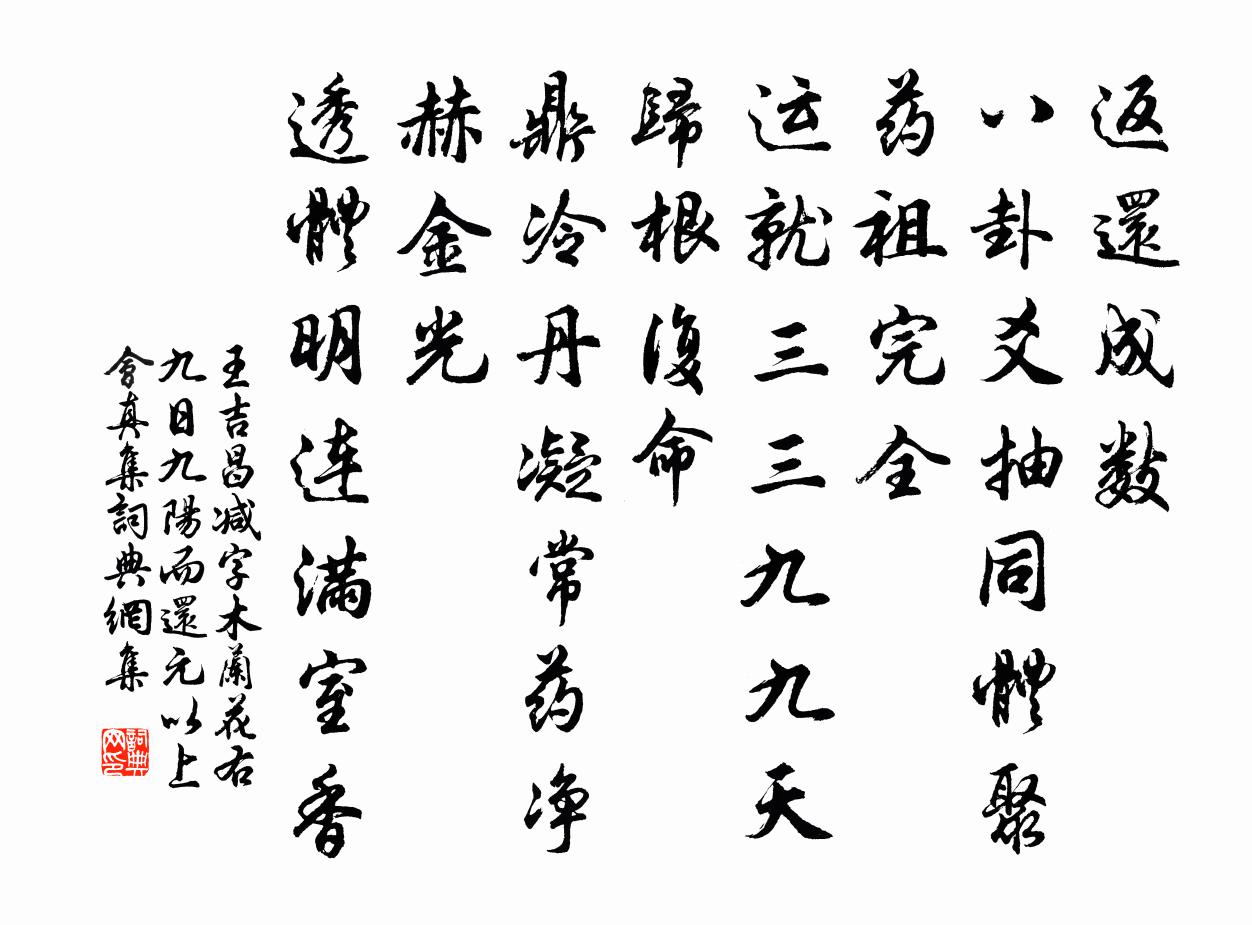 返還成数
八卦爻抽同體聚
药祖完全
运就三三九九天
歸根復命
鼎冷丹凝常药净
赫金光
透體明连满室香
王吉昌减字木蘭花右
九日九陽而還元以上
會真集詞典網集
詞典
网印